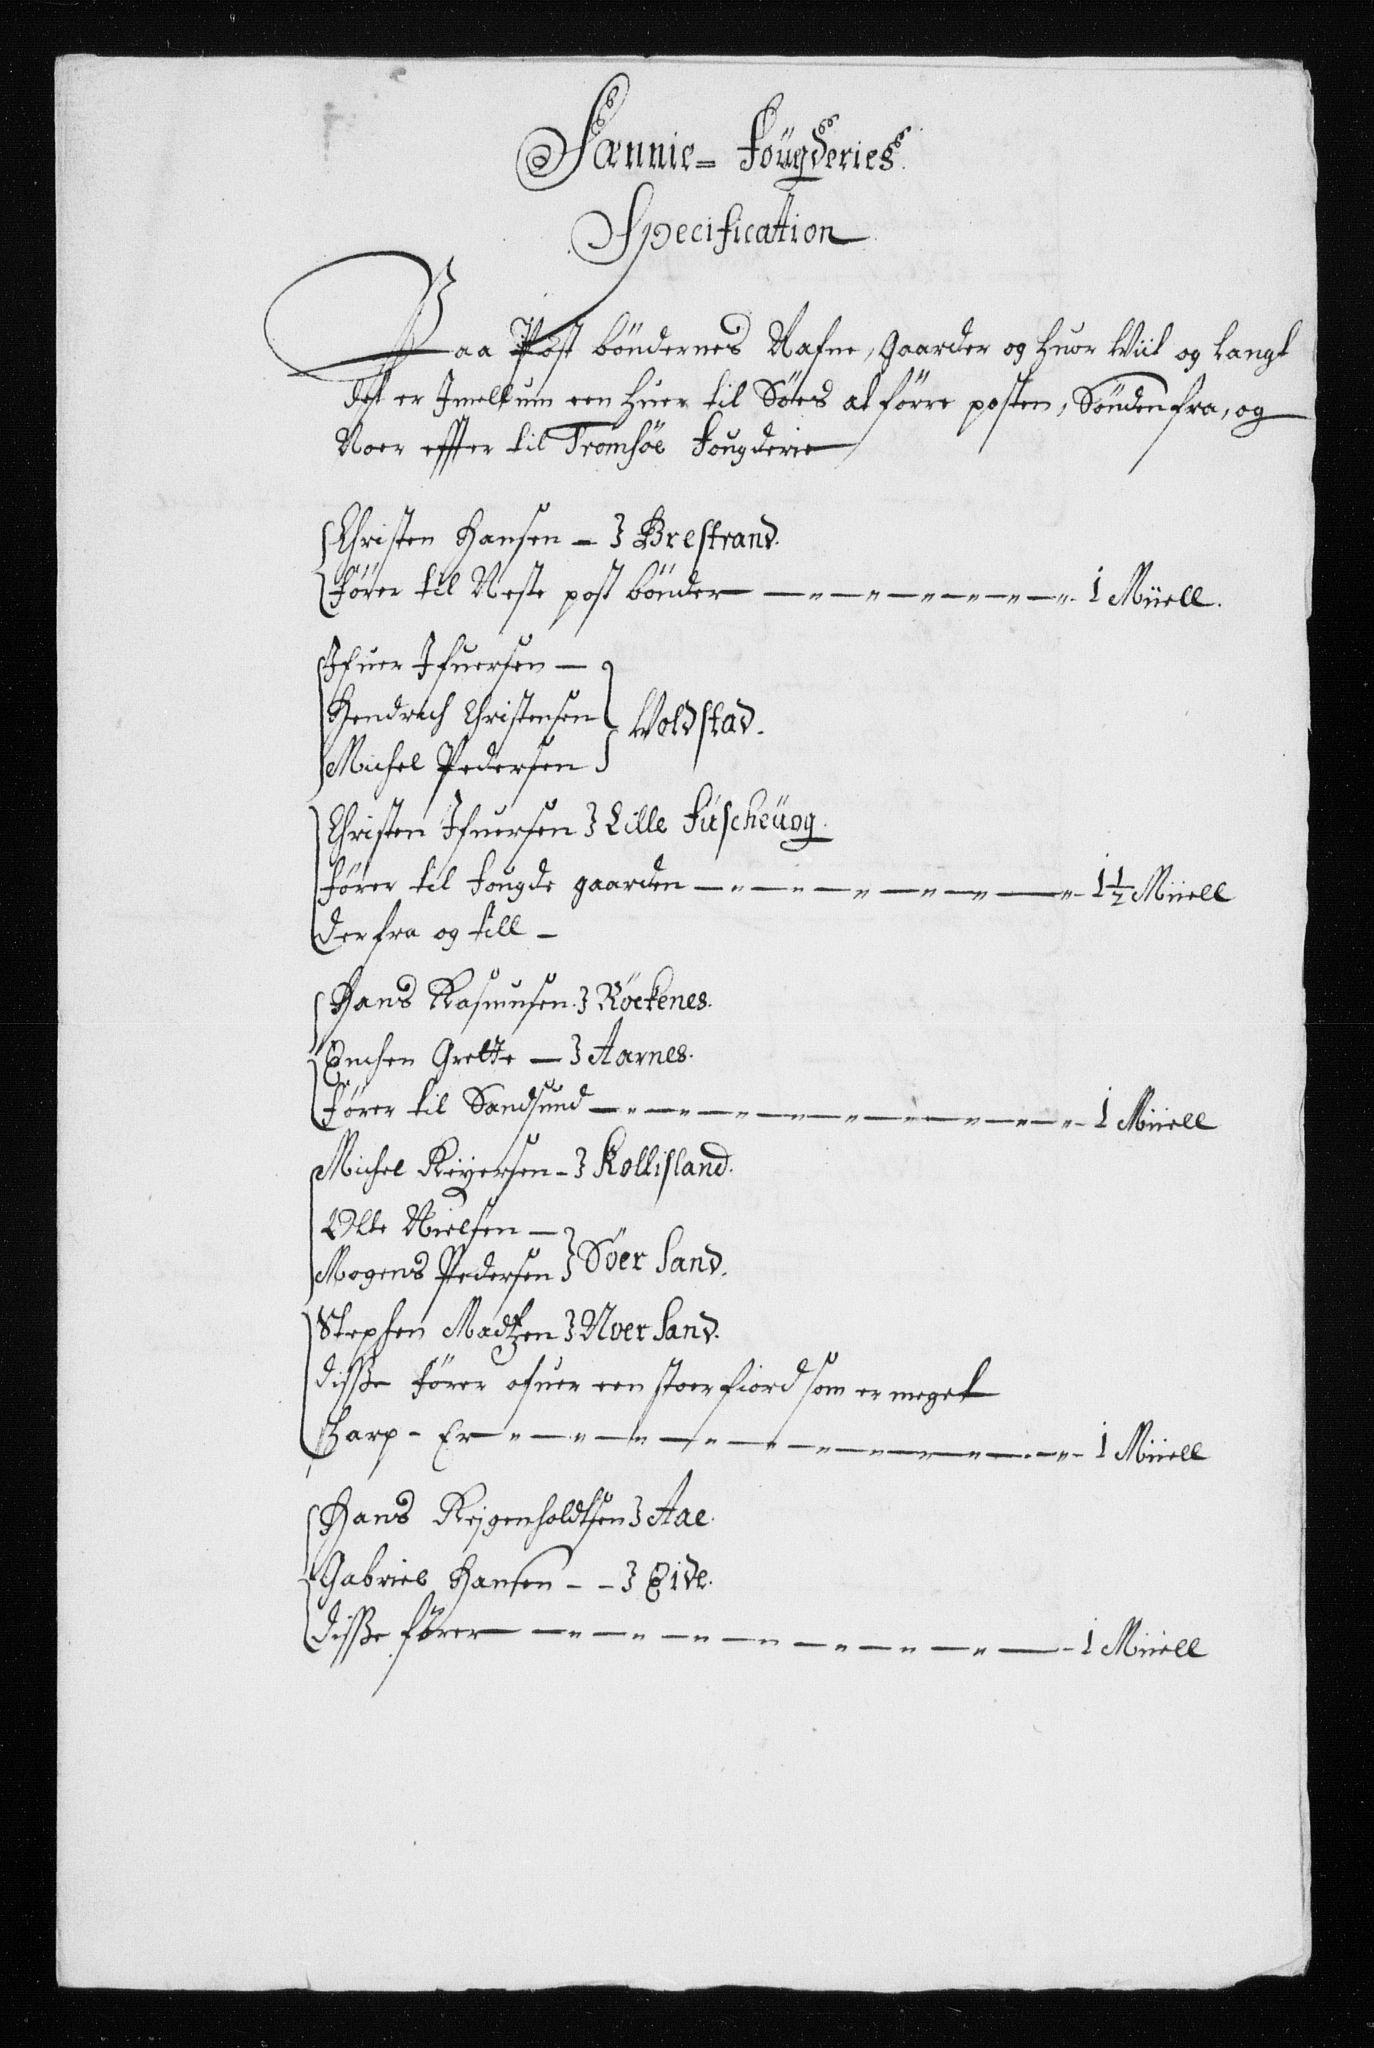 Sænnie= Fougderies
Specification
Paa Post böndernes Nafne, Gaarder og huor Wiit og Langt
det er Imellum een huer til Søes at förre posten, Söndenfra, og
Noer effter til Tromsöe Fougderie
Christen Hansen - } Brestrand.
förer til Neste post bönder 1 Miiell.
Ifuer Ifuersen -
Hendrich Christensen } Woldstad.
Michel Pedersen
Christen Ifuersen } Lille Fuscheuog.
förer til fougde gaarden 1 1/2 Miiell
der fra og till -
Hans Rasmusen } Röckenes.
Enchen Grette - } Aarnes.
förer til Sandsund 1 Miiell
Michel Reyersen - } Kollisland.
Olle Nielsen -
Mogens Pedersen } Söer Sand.
Stephen Madtzen } Nver Sand.
disse förer ofuer een stoer fiord som er meget
sharp - Er 1 Miiell
Hans Rejgenholdtsen } Aae.
Gabriel Hansen - - } Eide.
disse förer 1 Miiell